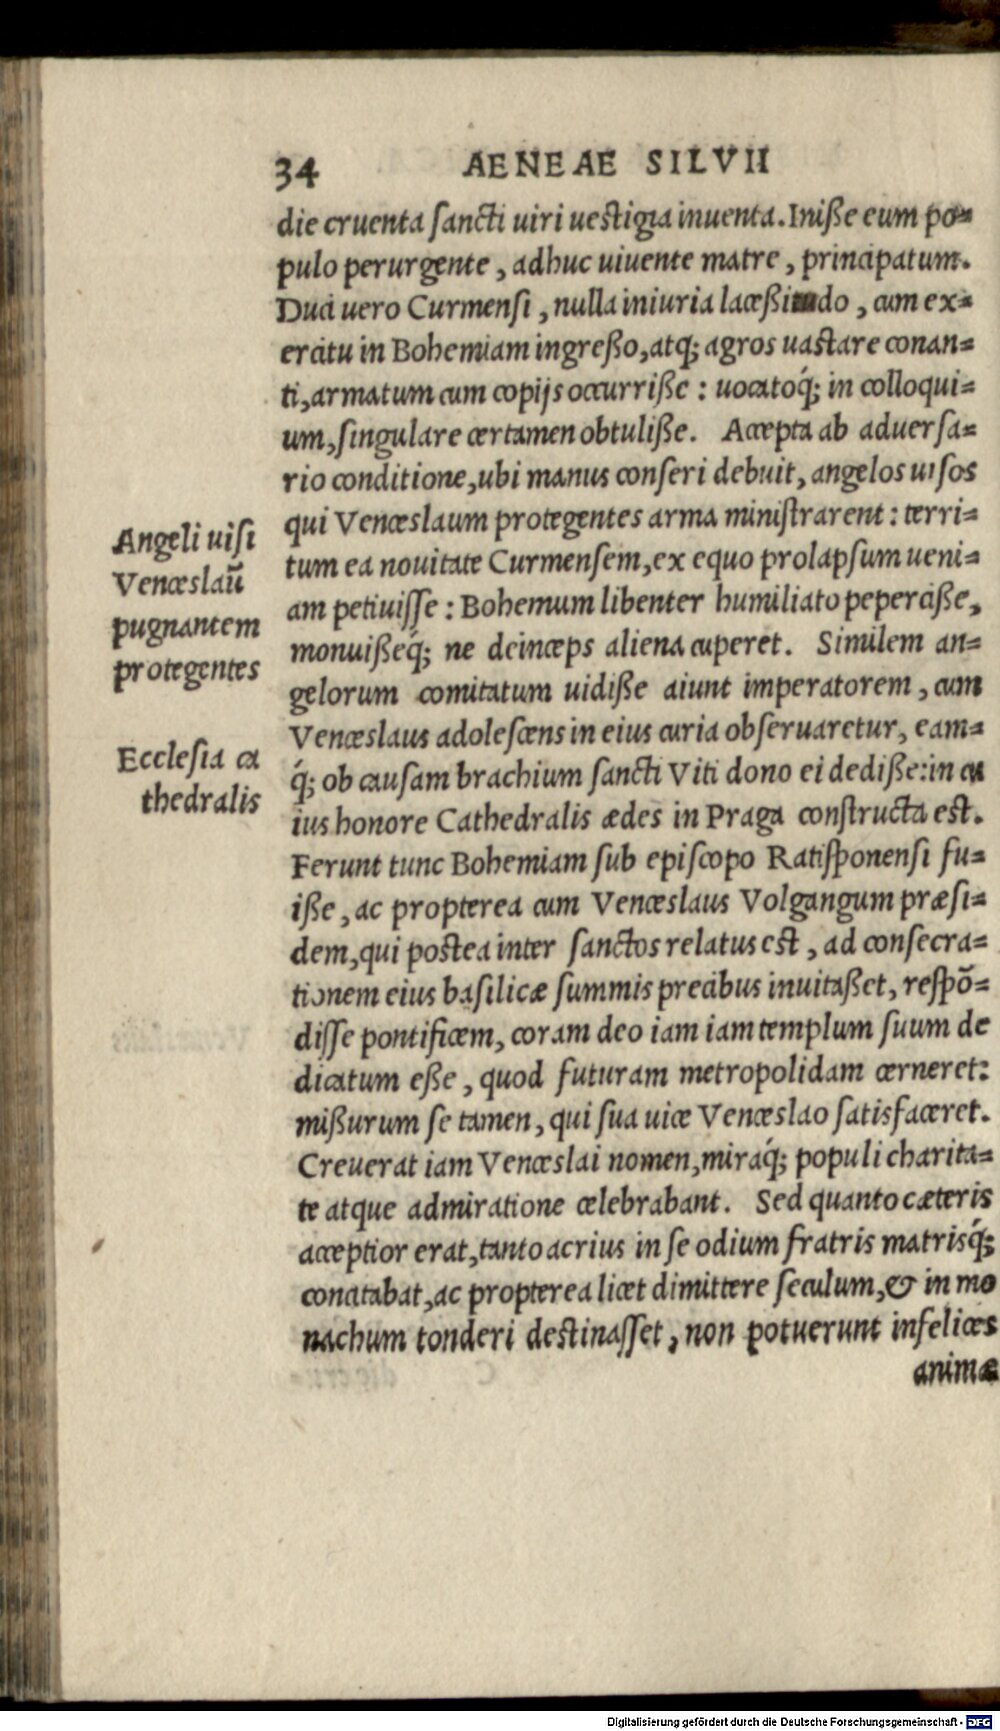 34 AENEAE SILVII
die cruenta sancti uiri uestigia inuenta. Inisse eum po-
pulo perurgente, adhuc uiuente matre, principatum.
Duci uero Curmensi, nulla iniuria lacessi do, cum ex-
ercitu in Bohemiam ingresso, atq; agros uastare conan-
ti, armatum cum copijs occurrisse: uocatoq́; in colloqui-
um, singulare certamen obtulisse. Accepta ab aduersa-
rio conditione, ubi manus conseri debuit, angelos uisos
qui Venceslaum protegentes arma ministrarent: terri-
Angeli uisi
Venceslaū
pugnantem
protegentes
tum ea nouitate Curmensem, ex equo prolapsum ueni-
am petiuisse: Bohemum libenter humiliato pepercisse,
monuisseq́; ne deinceps aliena cuperet. Similem an-
gelorum comitatum uidisse aiunt imperatorem, cum
Venceslaus adolescens in eius curia obseruaretur, eam-
Ecclesia ca
thedralis
q́; ob causam brachium sancti Viti dono ei dedisse: in cu
ius honore Cathedralis ædes in Praga constructa est.
Ferunt tunc Bohemiam sub episcopo Ratisponensi fu-
isse, ac propterea cum Venceslaus Volgangum præsi-
dem, qui postea inter sanctos relatus est, ad consecra-
tionem eius basilicæ summis precibus inuitasset, respō-
disse pontificem, coram deo iam iam templum suum de
dicatum esse, quod futuram metropolidam cerneret:
missurum se tamen, qui sua uice Venceslao satisfaceret.
Creuerat iam Venceslai nomen, miraq́; populi charita-
te atque admiratione celebrabant. Sed quanto cæteris
acceptior erat, tanto acrius in se odium fratris matrisq́;
concitabat, ac propterea licet dimittere seculum, & in mo
nachum tonderi destinasset, non potuerunt infelices
animæ
Digitalisierung gefördert durch die Deutsche Forschungsgemeinschaft - DFG